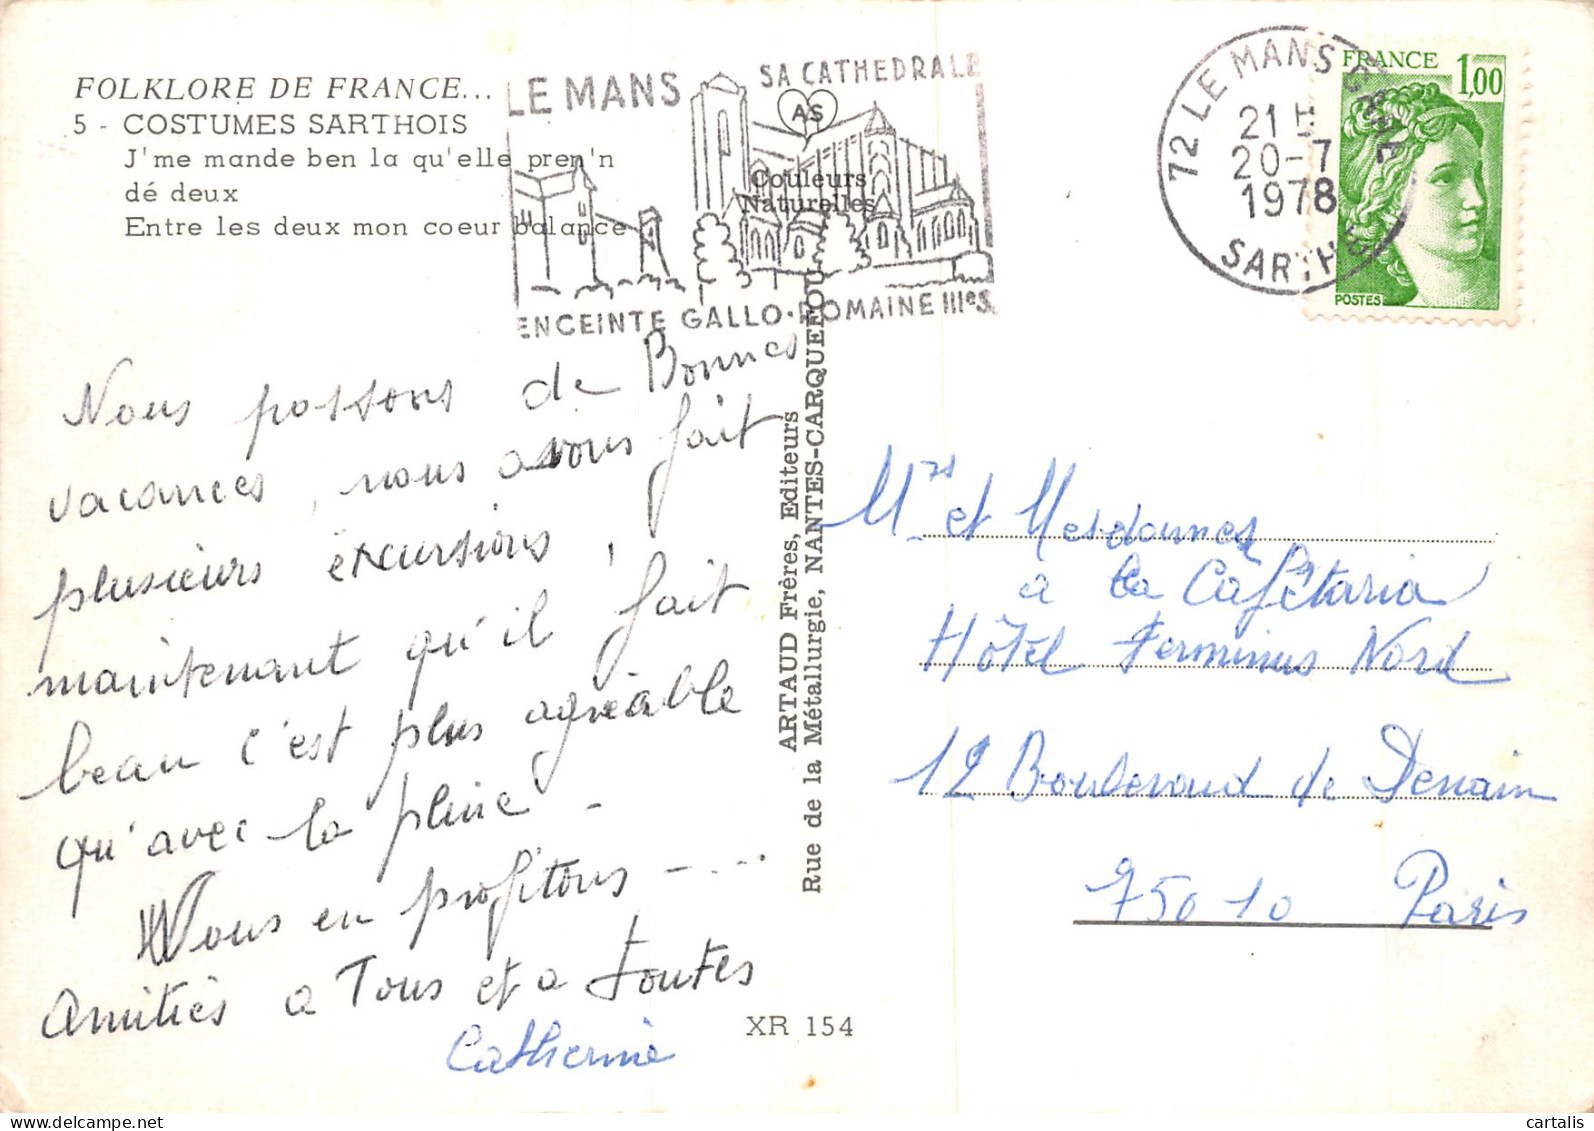 FOLKLORE DE FRANCE...
5 - COSTUMES SARTHOIS
J'me mande ben la qu'elle pren'n
dé deux
Entre les deux mon coeur balance
LE MANS
SA CATHEDRALE
AS
Couleurs
Naturelles
ENCEINTE GALLO-ROMAINE IIIeS.
72 LE MANS CRALE
21H
20-7
1978
SARTHE
FRANCE
1,00
POSTES
Nous passons de Bonnes
vacances, nous avons fait
plusieurs excursions,
maintenant qu'il fait
beau c'est plus agréable
qu'avec la pluie -
Nous en profitons - ...
Amitiés a Tous et a toutes
Catherine
ARTAUD Frères, Editeurs
Rue de la Métallurgie, NANTES-CARQUEFOU
XR 154
Mrs et Mesdames
a la Cafétaria
Hôtel Terminus Nord
12 Boulevard de Denain
75010 Paris
cartalis